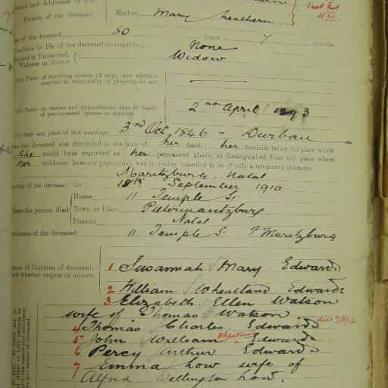 Parents of the deceased
Mother Mary
of the deceased 80 years 7 months
in life of the deceased (occupation) None
Married or Unmarried, Widow
Widower or Widow
(a) Name of surviving spouse (if any), and whether
married in community of property or not
(b) Name or names and approximate date of death
of pre-deceased spouse or spouses 2nd April 1893
(c) Date and place of last marriage 3rd Oct 1846 - Durban
the deceased was domiciled at the time of her death; her domicile being the place where
she would have regarded as her permanent abode, as distinguished from any place where
her residence, however prolonged, was intended to be of only a temporary character.
Maritzburg Natal
of the deceased: On 18th September 1910
House 11 Temple St
Where the person died Town or Pietermaritzburg
District Natal
residence of the deceased 11 Temple St P. Maritzburg
Names of Children of deceased,
and whether majors or minors
1 Susannah Mary Edwards
2 William Wheatland Edwards
3 Elizabeth Ellen Watson
wife of Thomas Watson
4 Thomas Charles Edwards
5 John William Edwards
6 Percy Arthur Edwards
7 Emma how wife of
Alfred Wellington how